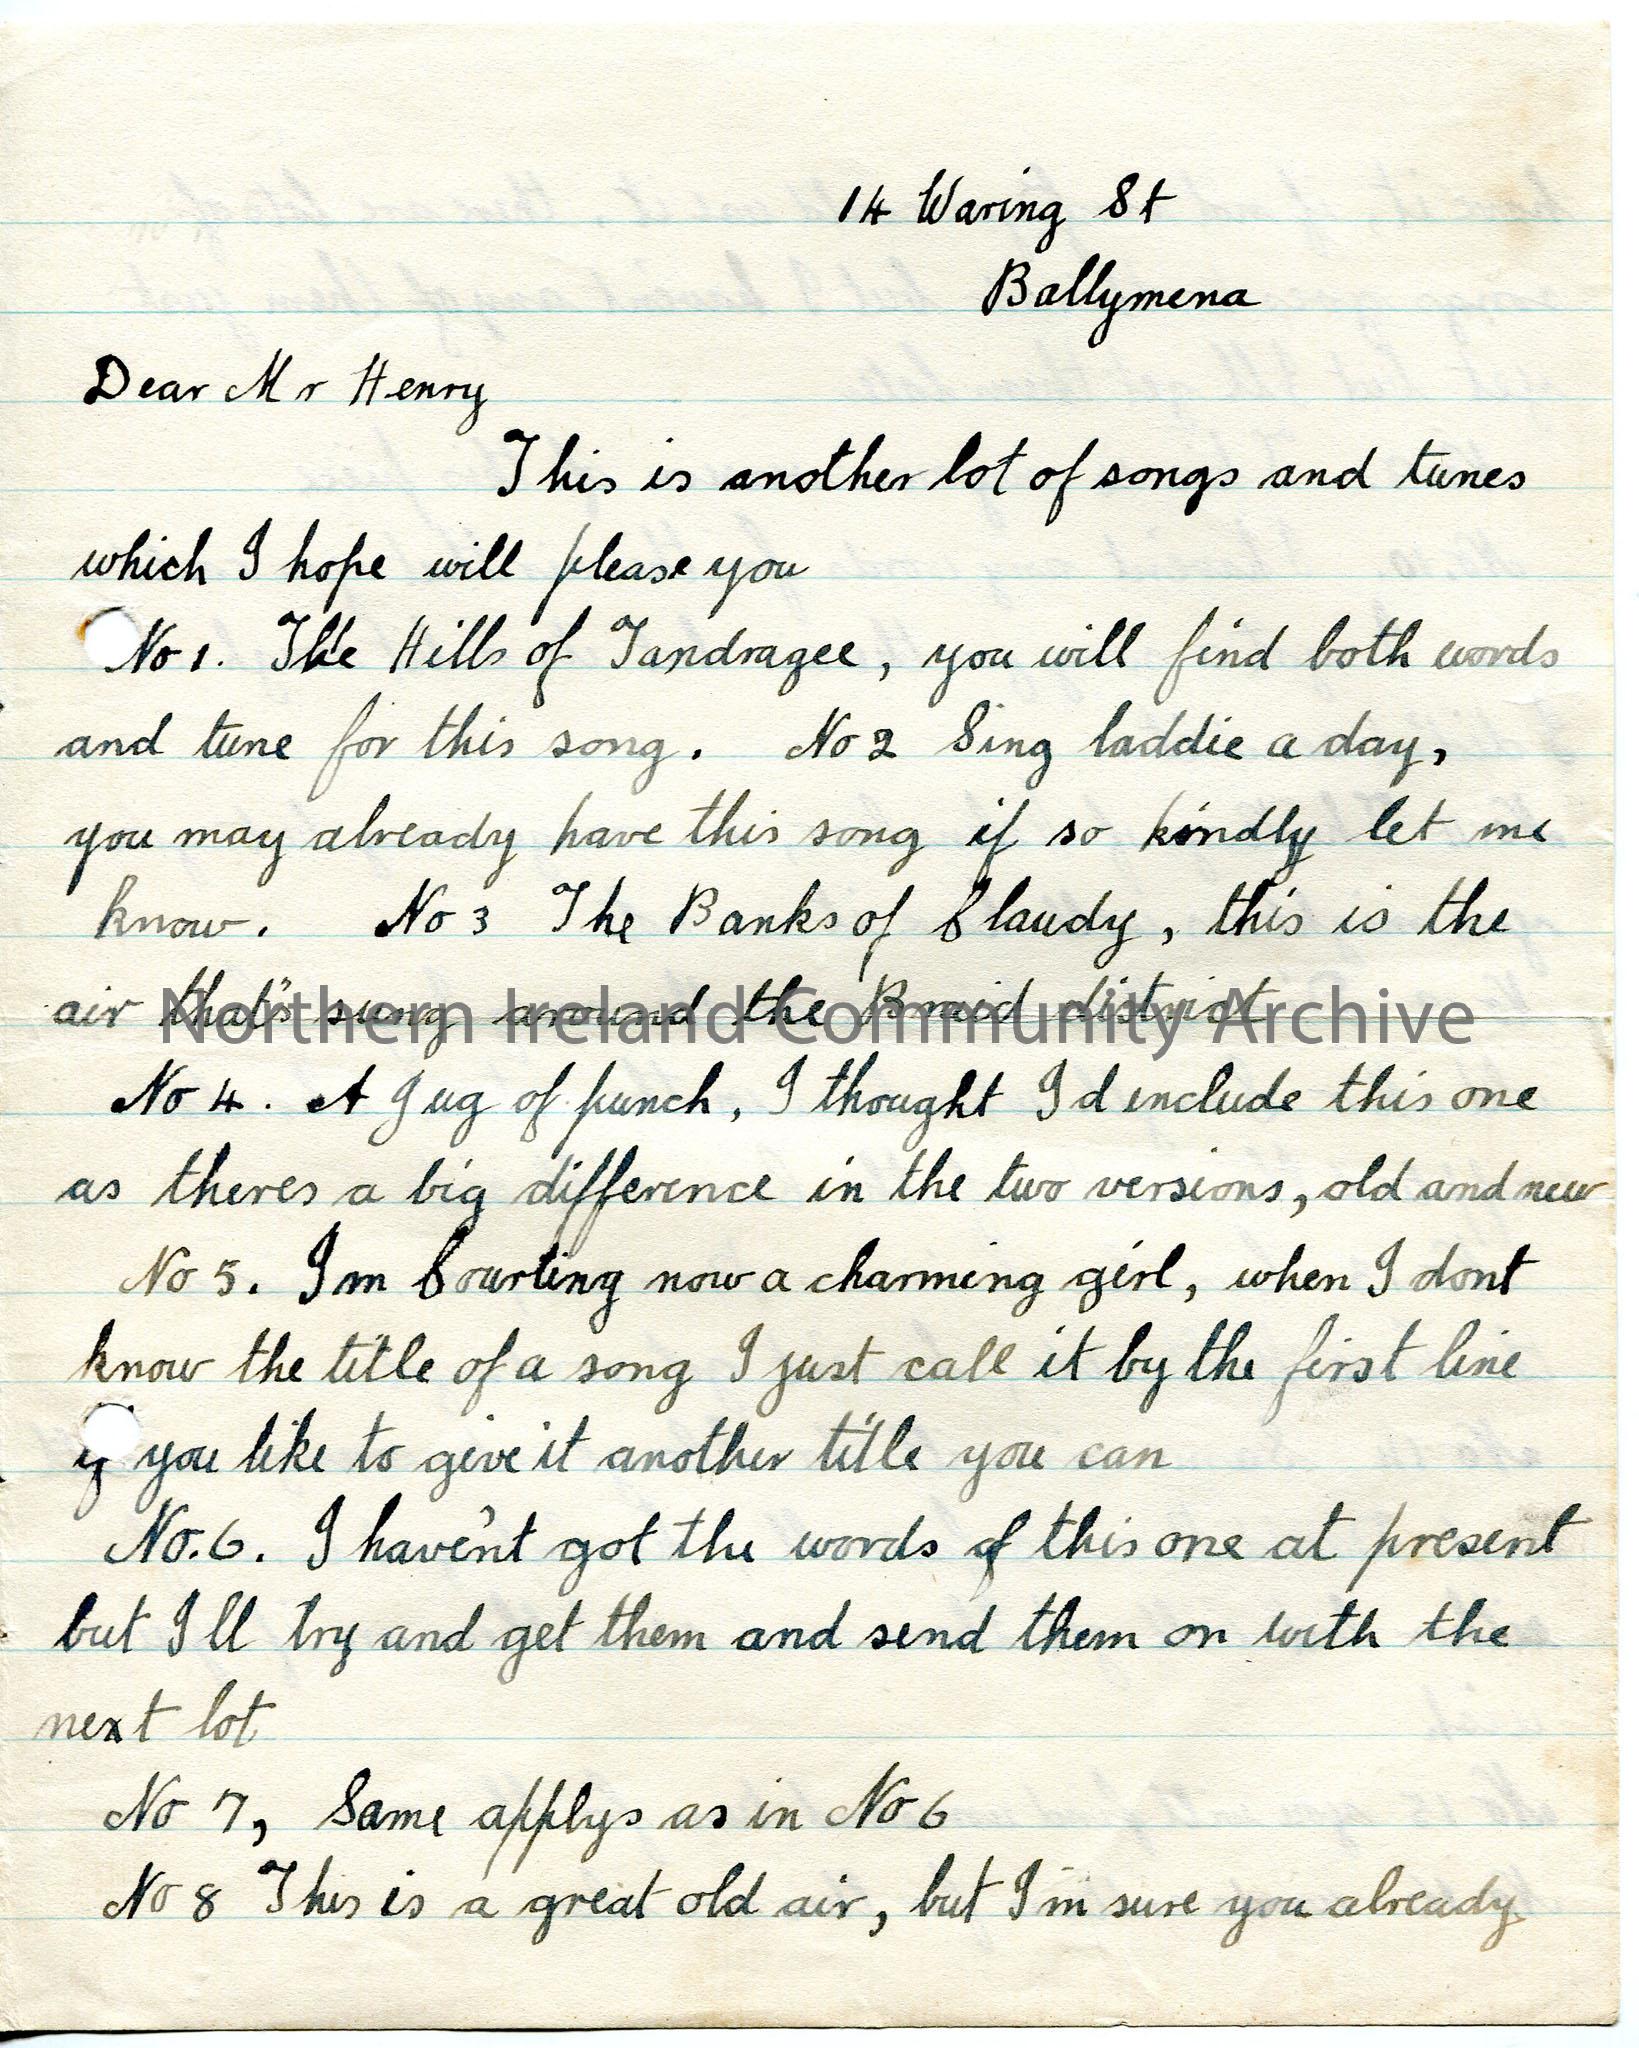 14 Waring St
Ballymena
Dear Mr Henry
This is another lot of songs and tunes
which I hope will please you
No 1. The Hills of Tandragee, you will find both words
and tune for this song. No 2 Sing laddie a day,
you may already have this song if so kindly let me
know. No 3 The Banks of Claudy, this is the
air that's sung around the Braid district
Northern Ireland Community Archive
No 4. A Jug of punch, I thought I d include this one
as theres a big difference in the two versions, old and new
No 5. Im Courting now a charming girl, when I dont
know the title of a song I just call it by the first line
if you like to give it another title you can
No. 6. I haven't got the words of this one at present
but I ll try and get them and send them on with the
next lot
No 7, Same applys as in No 6
No 8 This is a great old air, but I'm sure you already